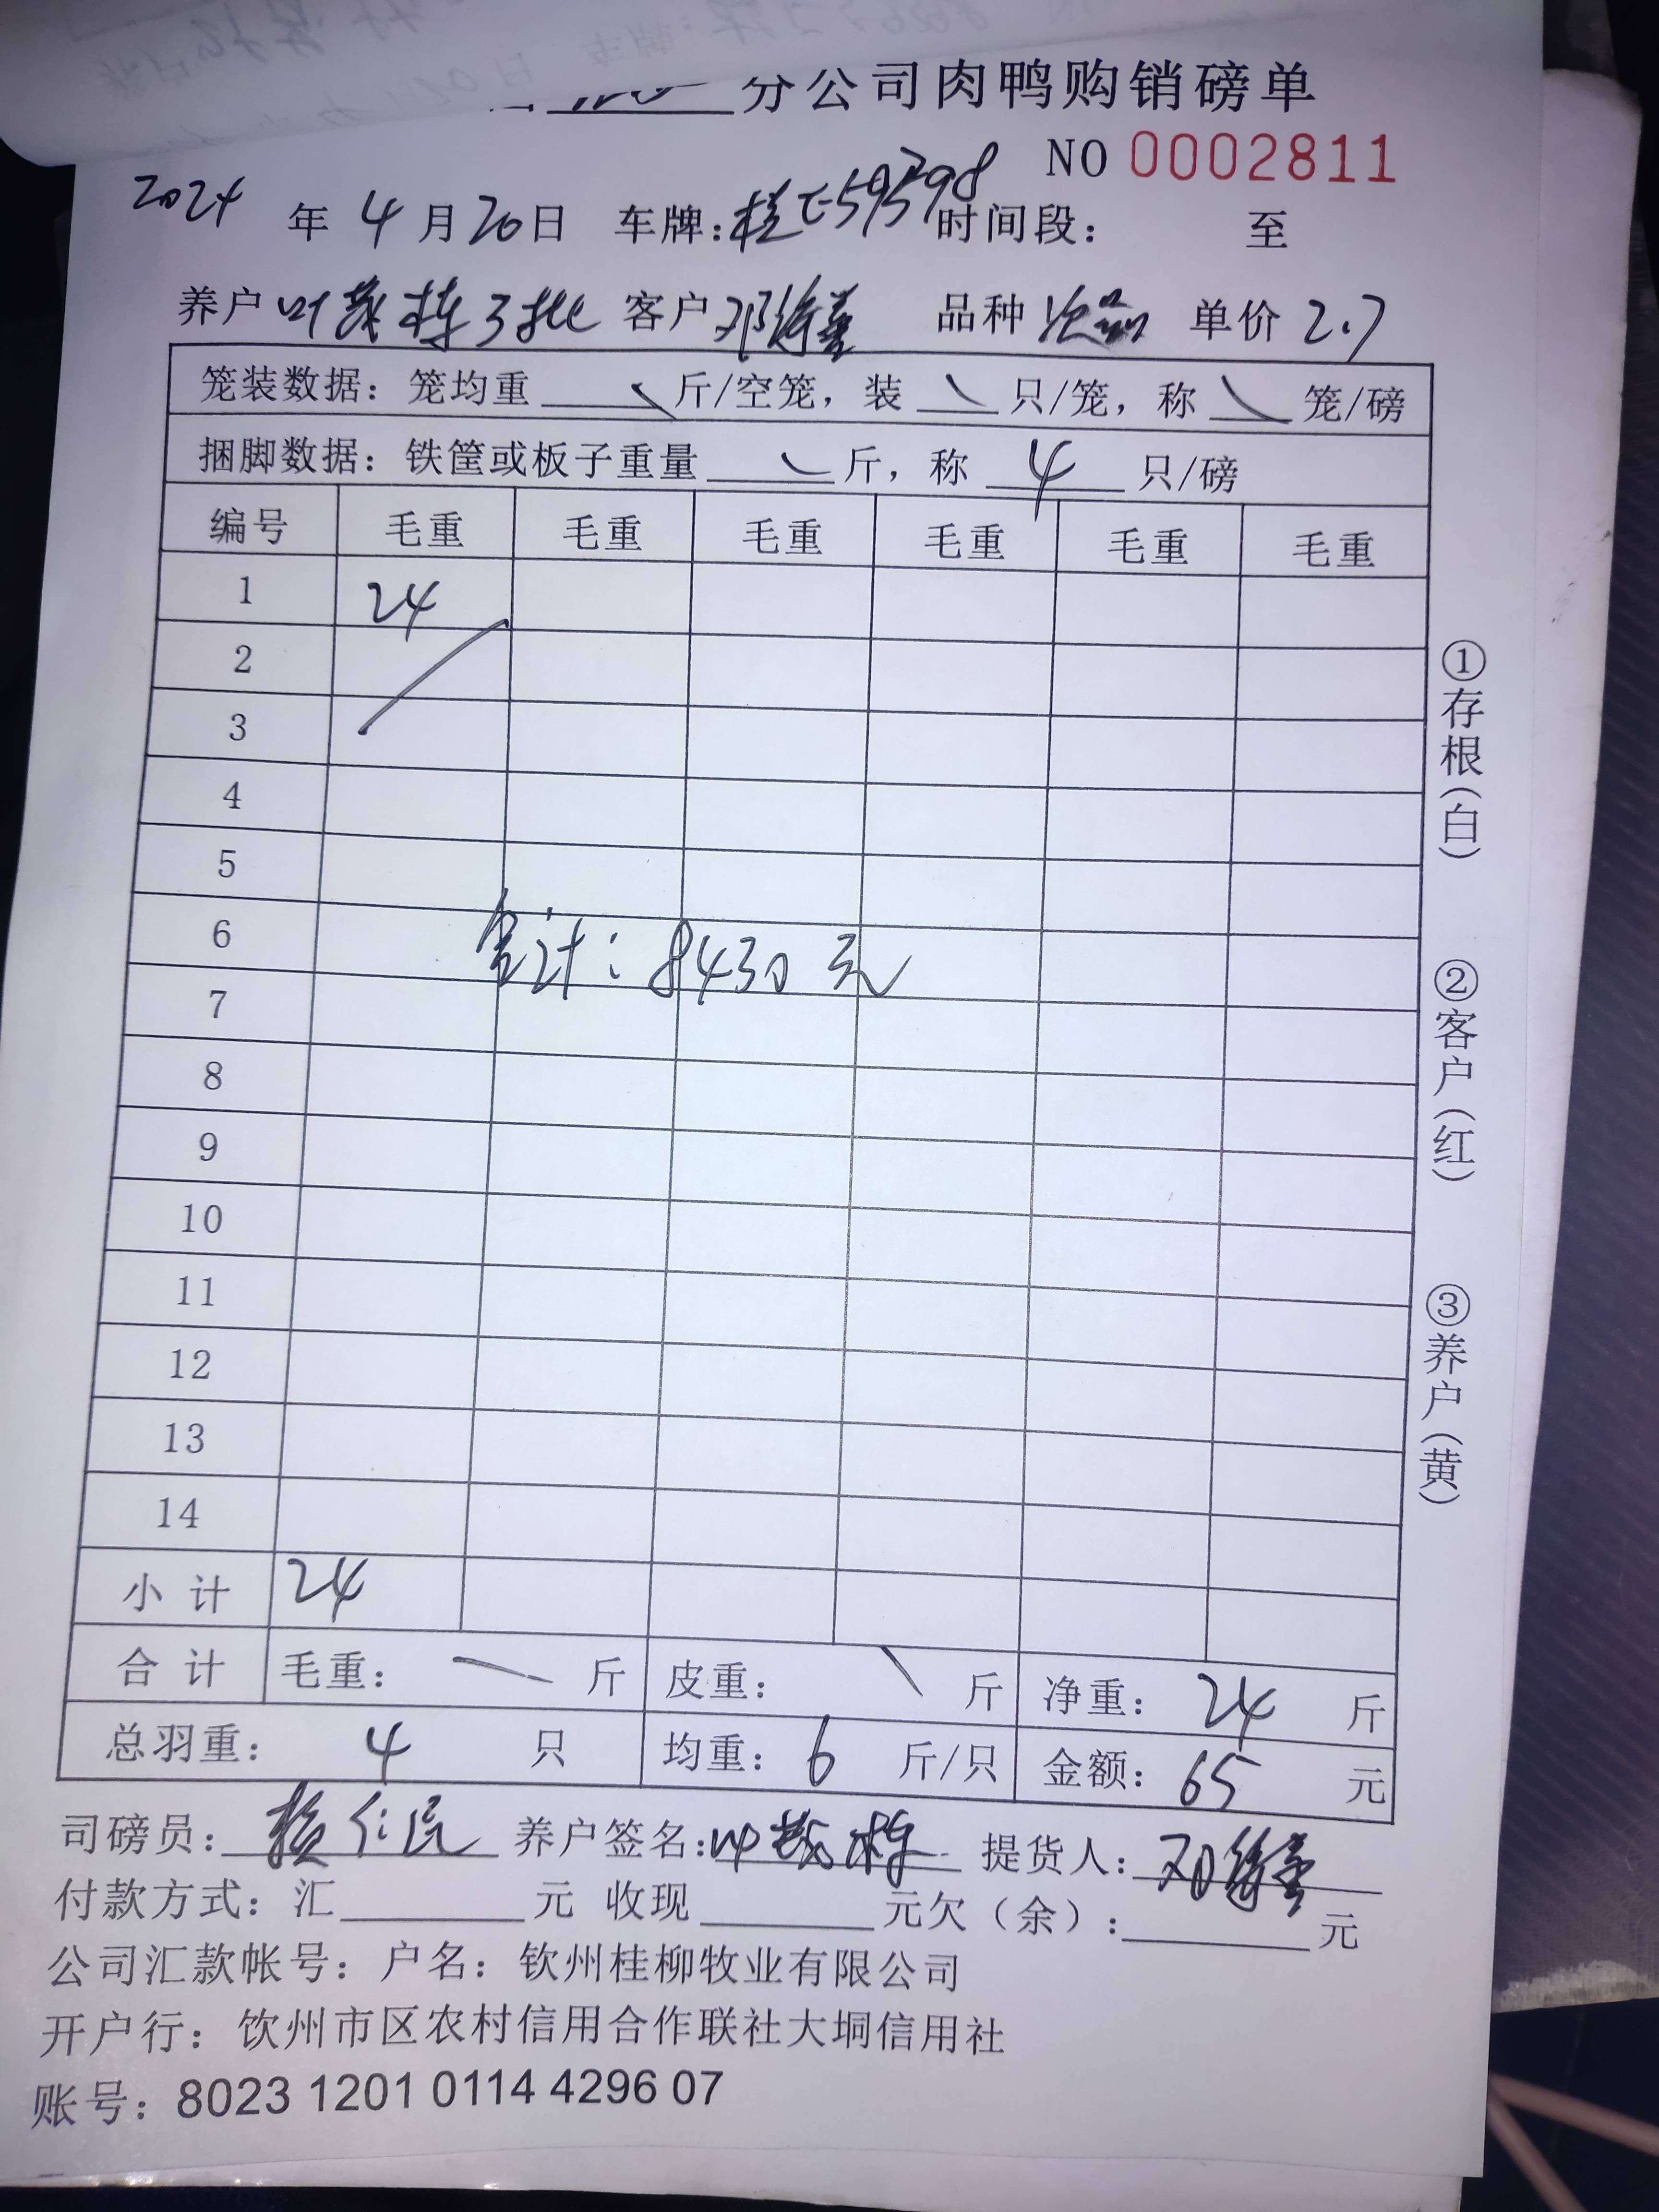 分公司肉鸭购销磅单
NO 0002811
2024 年 4 月 20 日 车牌: 时间段: 至
养户 叶茂栋3批 客户 邓 品种 次品 单价 2.7
笼装数据: 笼均重 斤/空笼, 装 只/笼, 称 笼/磅
捆脚数据: 铁筐或板子重量 斤, 称 4 只/磅
编号 毛重 毛重 毛重 毛重 毛重 毛重
1 24
2
3
4
5
6
计: 8430 元
7
8
9
10
11
12
13
14
小计 24
合计 毛重: 斤 皮重: 斤 净重: 24 斤
总羽重: 4 只 均重: 6 斤/只 金额: 65 元
司磅员: 仁民 养户签名: 叶茂栋 提货人: 邓
付款方式: 汇 元 收现 元欠(余): 元
公司汇款帐号: 户名: 钦州桂柳牧业有限公司
开户行: 饮州市区农村信用合作联社大垌信用社
账号: 8023 1201 0114 4296 07
①存根(白)
②客户(红)
③养户(黄)